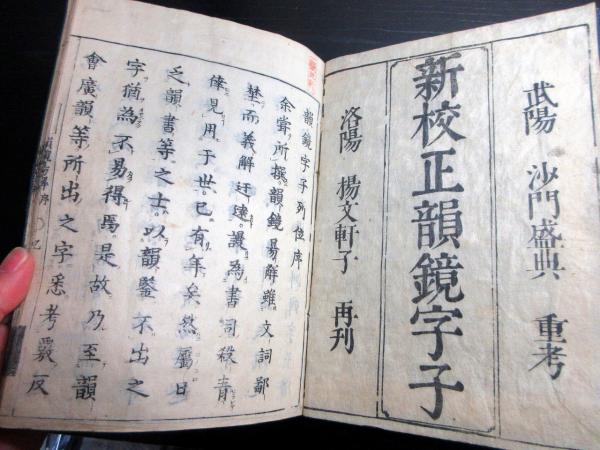 武陽 沙門盛典 重考
新校正韻鏡字子
洛陽 楊文軒子 再刊
韻鏡字子列位序
余嘗所撰韻鏡易解雖文詞鄙
埜而義解迂遠謾為書司殺青
倖見用于世已有年矣然屬日
乏韻書等之士以韻鑒不出之
字猶為不易得焉是故乃至韻
會廣韻等所出之字悉考覈反